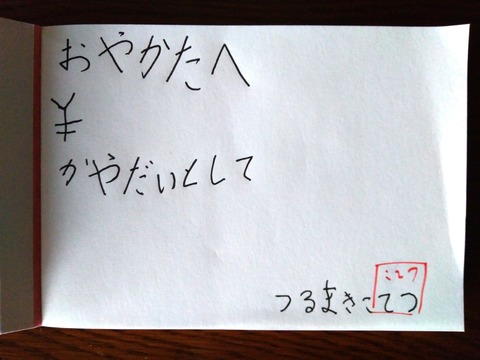 おやかたへ
¥
かやだいとして
つるまきこてつ
こてつ